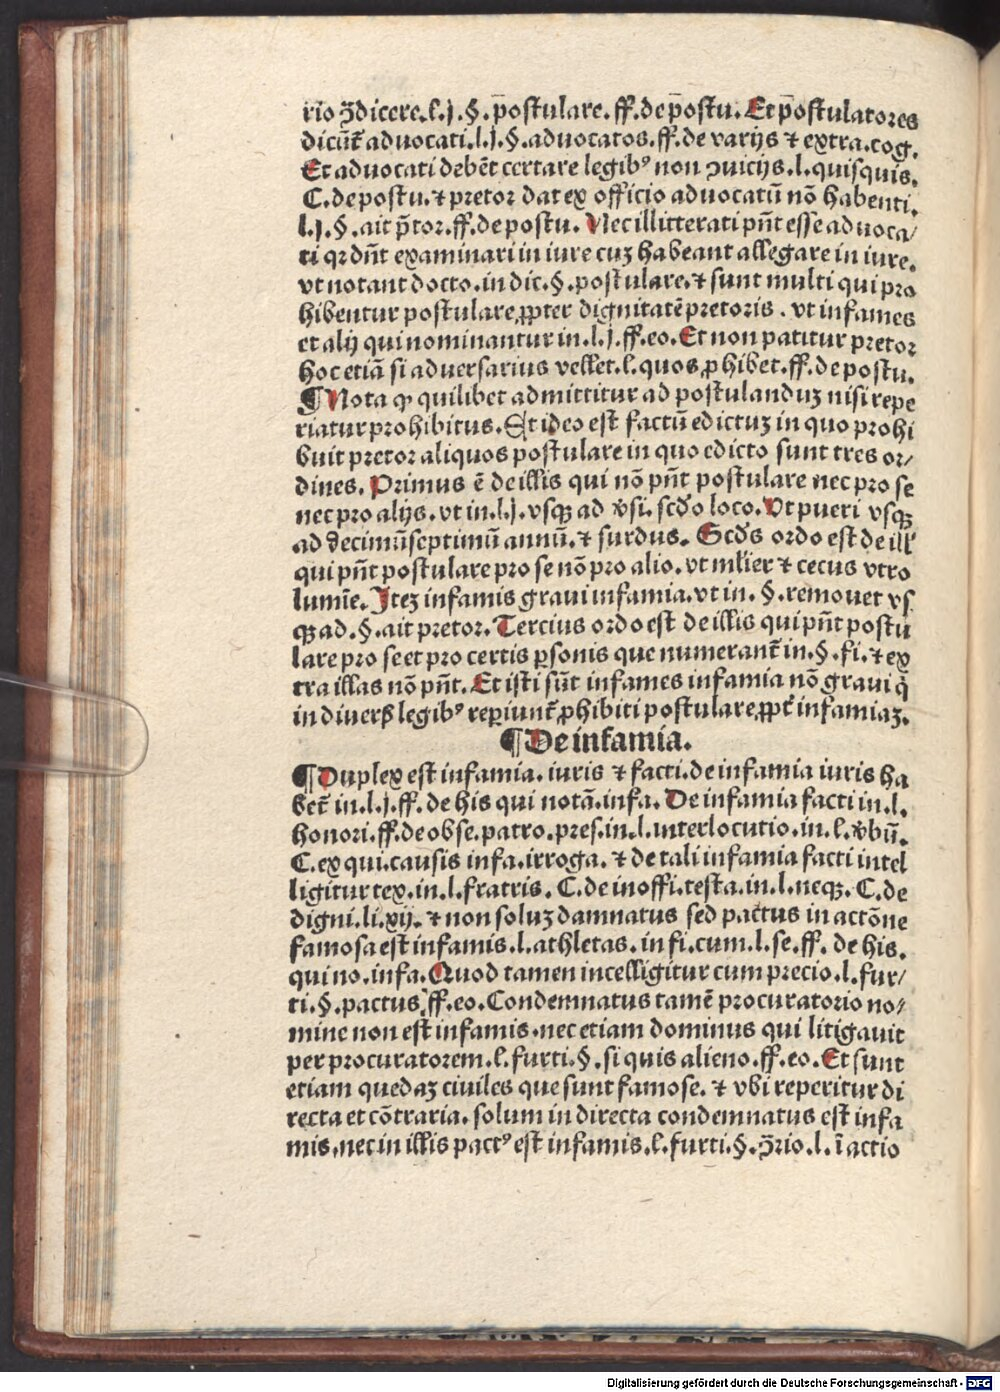 rio ꝯ̃dicere.l.j.§. p̄ostulare.ff.de p̄ostu. Et p̄ostulatores
dicūt᷑ aduocati.l.j.§.aduocatos.ff.de varijs ⁊ extra.cog.
Et aduocati debēt certare legibꝰ non ↄuicijs.l.quisquis.
C.de postu.⁊ pretor dat ex officio aduocatū nō habenti.
l.j.§.ait p̄tor.ff.de postu. Nec illitterati pn̄t esse aduoca/
ti qꝛ dn̄t examinari in iure cuꝫ habeant allegare in iure.
vt notant docto.in dic.§.postulare.⁊ sunt multi qui pro
hibentur postulare ꝓpter dignitatē pretoris. vt infames
et alij qui nominantur in.l.j.ff.eo. Et non patitur pretor
hoc etiā si aduersarius vellet.l.quos ꝓhibet.ff.de postu.
¶ Nota ꝙ quilibet admittitur ad postulanduꝫ nisi repe
riatur prohibitus. Et ideo est factū edictuꝫ in quo prohi
buit pretor aliquos postulare in quo edicto sunt tres or/
dines. Primus ē de illis qui nō pn̄t postulare nec pro se
nec pro alijs. vt in.l.j. vsqꝫ ad v̓si. scd̓o loco. Vt pueri vsqꝫ
ad decimūseptimū annū.⁊ surdus. Scd̓s ordo est de ill̓
qui pn̄t postulare pro se nō pro alio. vt ml̓ier ⁊ cecus vtro
lumīe. Iteꝫ infamis graui infamia.vt in. §.remouet vs
qꝫ ad.§.ait pretor. Tercius ordo est de illis qui pn̄t postu
lare pro se et pro certis ꝑsonis que numerant᷑ in.§.fi.⁊ ex
tra illas nō pn̄t. Et isti sūt infames infamia nō graui q̇
in diuersꝭ legibꝰ reꝑiunt᷑ ꝓhibiti postulare ꝓpt̓ infamiaꝫ.
¶ De infamia.
¶ Duplex est infamia. iuris ⁊ facti. de infamia iuris ha
bet᷑ in.l.j.ff. de his qui notā.infa. De infamia facti in.l.
honori.ff.de obse.patro.pres.in.l.interlocutio.in.l.v̓bū.
C.ex qui.causis infa.irroga. ⁊ de tali infamia facti intel
ligitur tex.in.l.fratris. C.de inoffi.testa.in.l.neqꝫ. C.de
digni.li.xij. ⁊ non soluꝫ damnatus sed pactus in actōne
famosa est infamis.l.athletas. in fi.cum.l.se.ff. de his.
qui no.infa. Quod tamen intelligitur cum precio.l.fur/
ti.§.pactus.ff.eo. Condemnatus tamē procuratorio no/
mine non est infamis.nec etiam dominus qui litigauit
per procuratorem.l.furti.§.si quis alieno.ff.eo. Et sunt
etiam quedaꝫ ciuiles que sunt famose. ⁊ vbi reperitur di
recta et cōtraria. solum in directa condemnatus est infa
mis.nec in illis pactꝰ est infamis.l.furti.§.ꝯ̃rio.l.ī actio
Digitalisierung gefördert durch die Deutsche Forschungsgemeinschaft - DFG